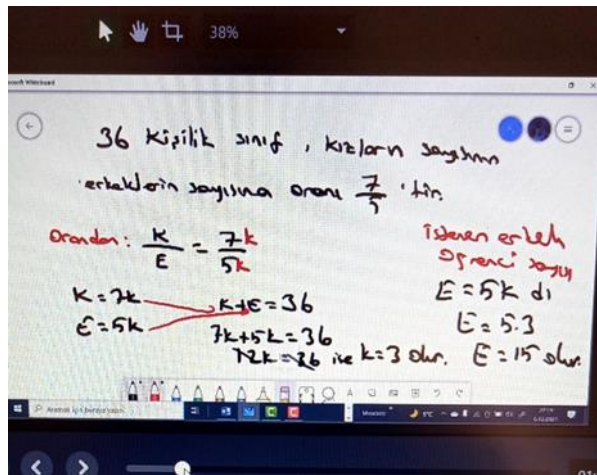 38%
36 Kişilik sınıf, kızların sayısının
erkeklerin sayısına oranı 7/5 'tir.
Orandan: K/E = 7k/5k
K = 7k
E = 5k
K+E = 36
7k+5k = 36
12k = 36 ise k = 3 olur.
istenen erkek
öğrenci sayısı
E = 5k dı
E = 5.3
E = 15 olur.
Aramak için buraya yazın